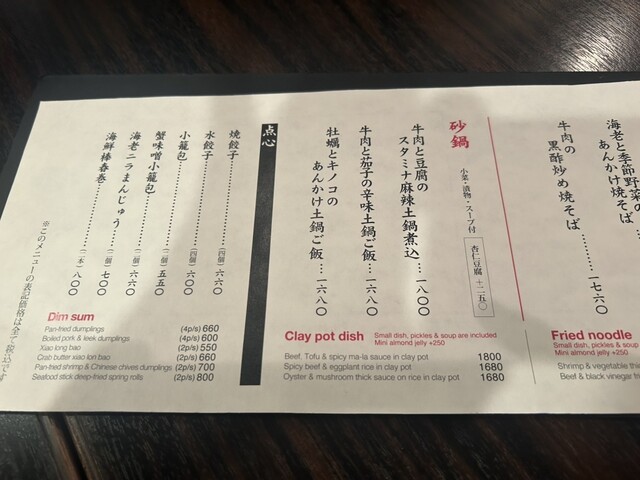 海老と季節野菜の
あんかけ焼そば
牛肉の
黒酢炒め焼そば……一七六〇
砂鍋
小菜・漬物・スープ付
杏仁豆腐 +二五〇
牛肉と豆腐の
スタミナ麻辣土鍋煮込…一八〇〇
牛肉と茄子の辛味土鍋ご飯…一六八〇
牡蠣とキノコの
あんかけ土鍋ご飯…一六八〇
点心
焼餃子 (四個) 六六〇
水餃子 (四個) 六〇〇
小籠包 (二個) 五五〇
蟹味噌小籠包 (二個) 六六〇
海老ニラまんじゅう (二個) 七〇〇
海鮮棒春巻 (二本) 八〇〇
※このメニューの表記価格は全て税込です
Dim sum
Pan-fried dumplings (4p/s) 660
Boiled pork & leek dumplings (4p/s) 600
Xiao long bao (2p/s) 550
Crab butter xiao lon bao (2p/s) 660
Pan-fried shrimp & Chinese chives dumplings (2p/s) 700
Seafood stick deep-fried spring rolls (2p/s) 800
Clay pot dish Small dish, pickles & soup are included
Mini almond jelly +250
Beef, Tofu & spicy ma-la sauce in clay pot 1800
Spicy beef & eggplant rice in clay pot 1680
Oyster & mushroom thick sauce on rice in clay pot 1680
Fried noodle
Small dish, pickles & sou
Mini almond jelly +250
Shrimp & vegetable thi
Beef & black vinegar fr